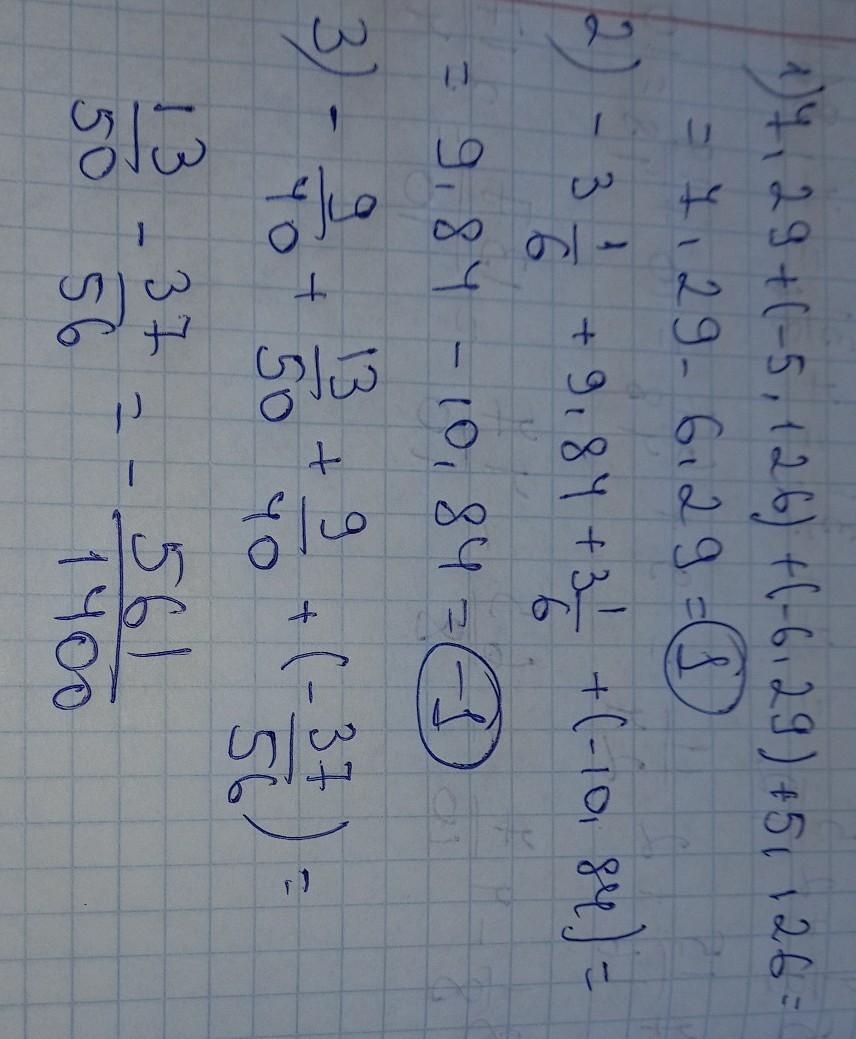 1) 7,29 + (-5,126) + (-6,29) + 5,126 =
= 7,29 - 6,29 = 1
2) - 3 1/6 + 9,84 + 3 1/6 + (-10,84) =
= 9,84 - 10,84 = -1
3) - 9/40 + 13/50 + 9/40 + (- 37/56) =
13/50 - 37/56 = - 561/1400